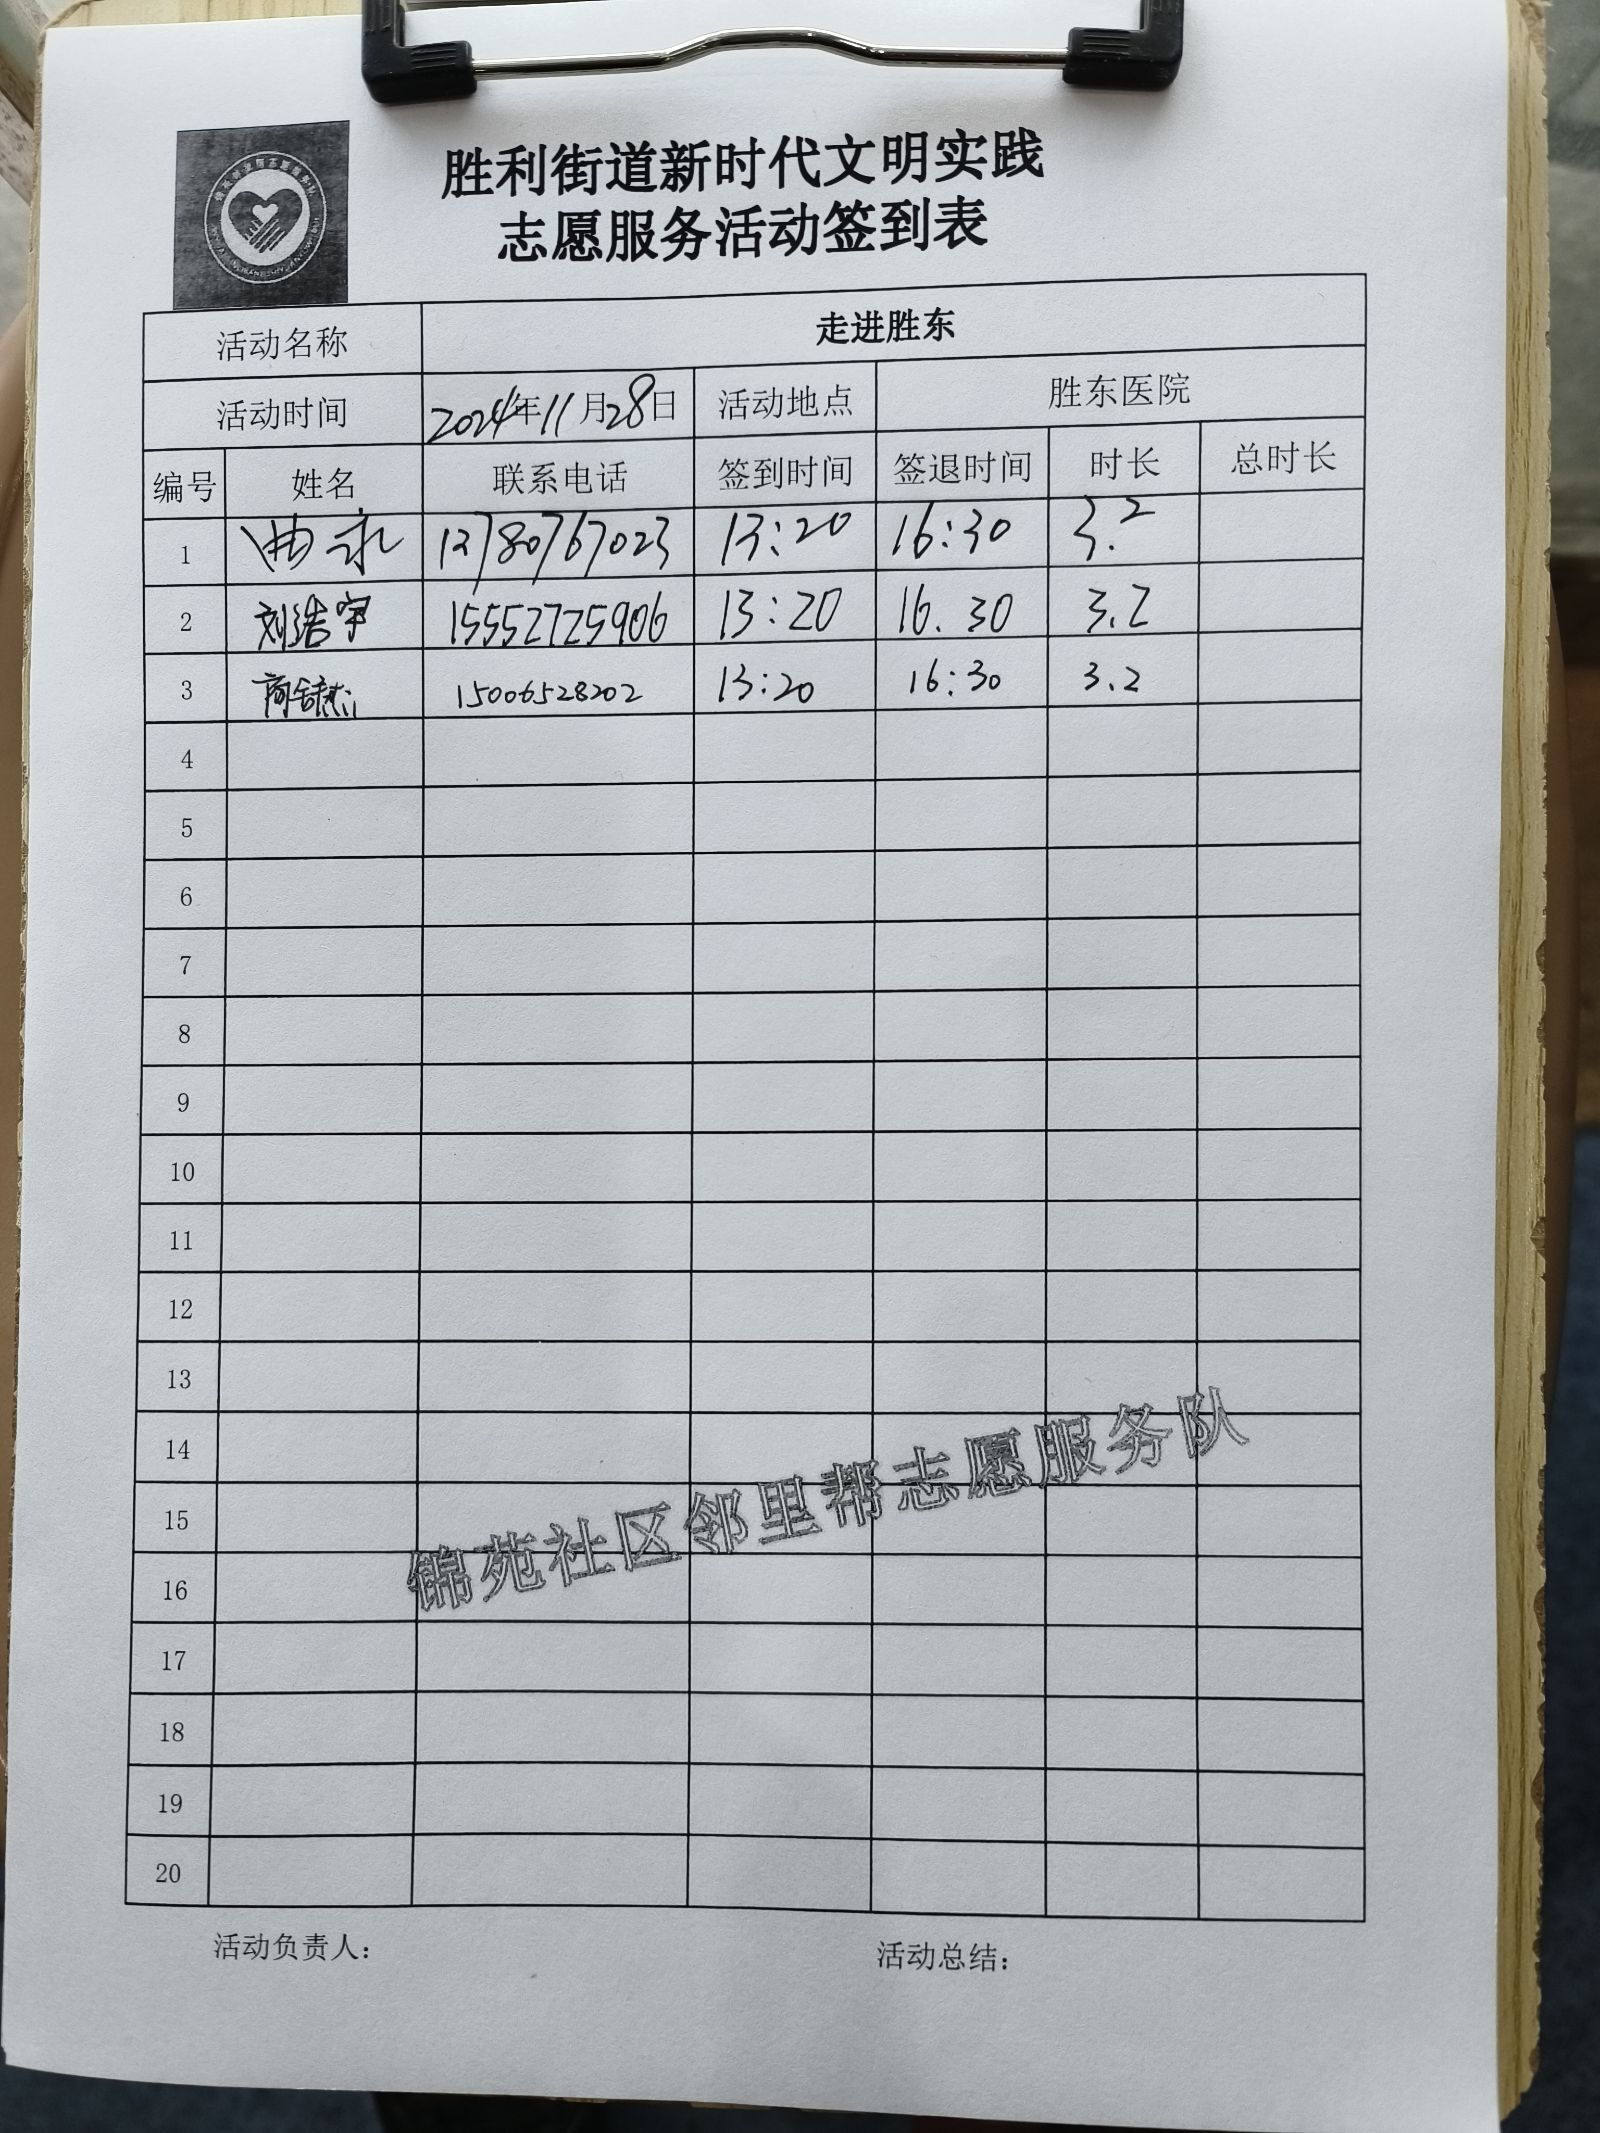 胜利街道新时代文明实践
志愿服务活动签到表
活动名称 走进胜东
活动时间 2024年11月28日 活动地点 胜东医院
编号 姓名 联系电话 签到时间 签退时间 时长 总时长
1 曲永 13780767023 13:20 16:30 3.2
2 刘浩宇 15552725906 13:20 16.30 3.2
3 商 15006528202 13:20 16:30 3.2
4
5
6
7
8
9
10
11
12
13
14
15
16
17
18
19
20
锦苑社区邻里帮志愿服务队
活动负责人： 活动总结：